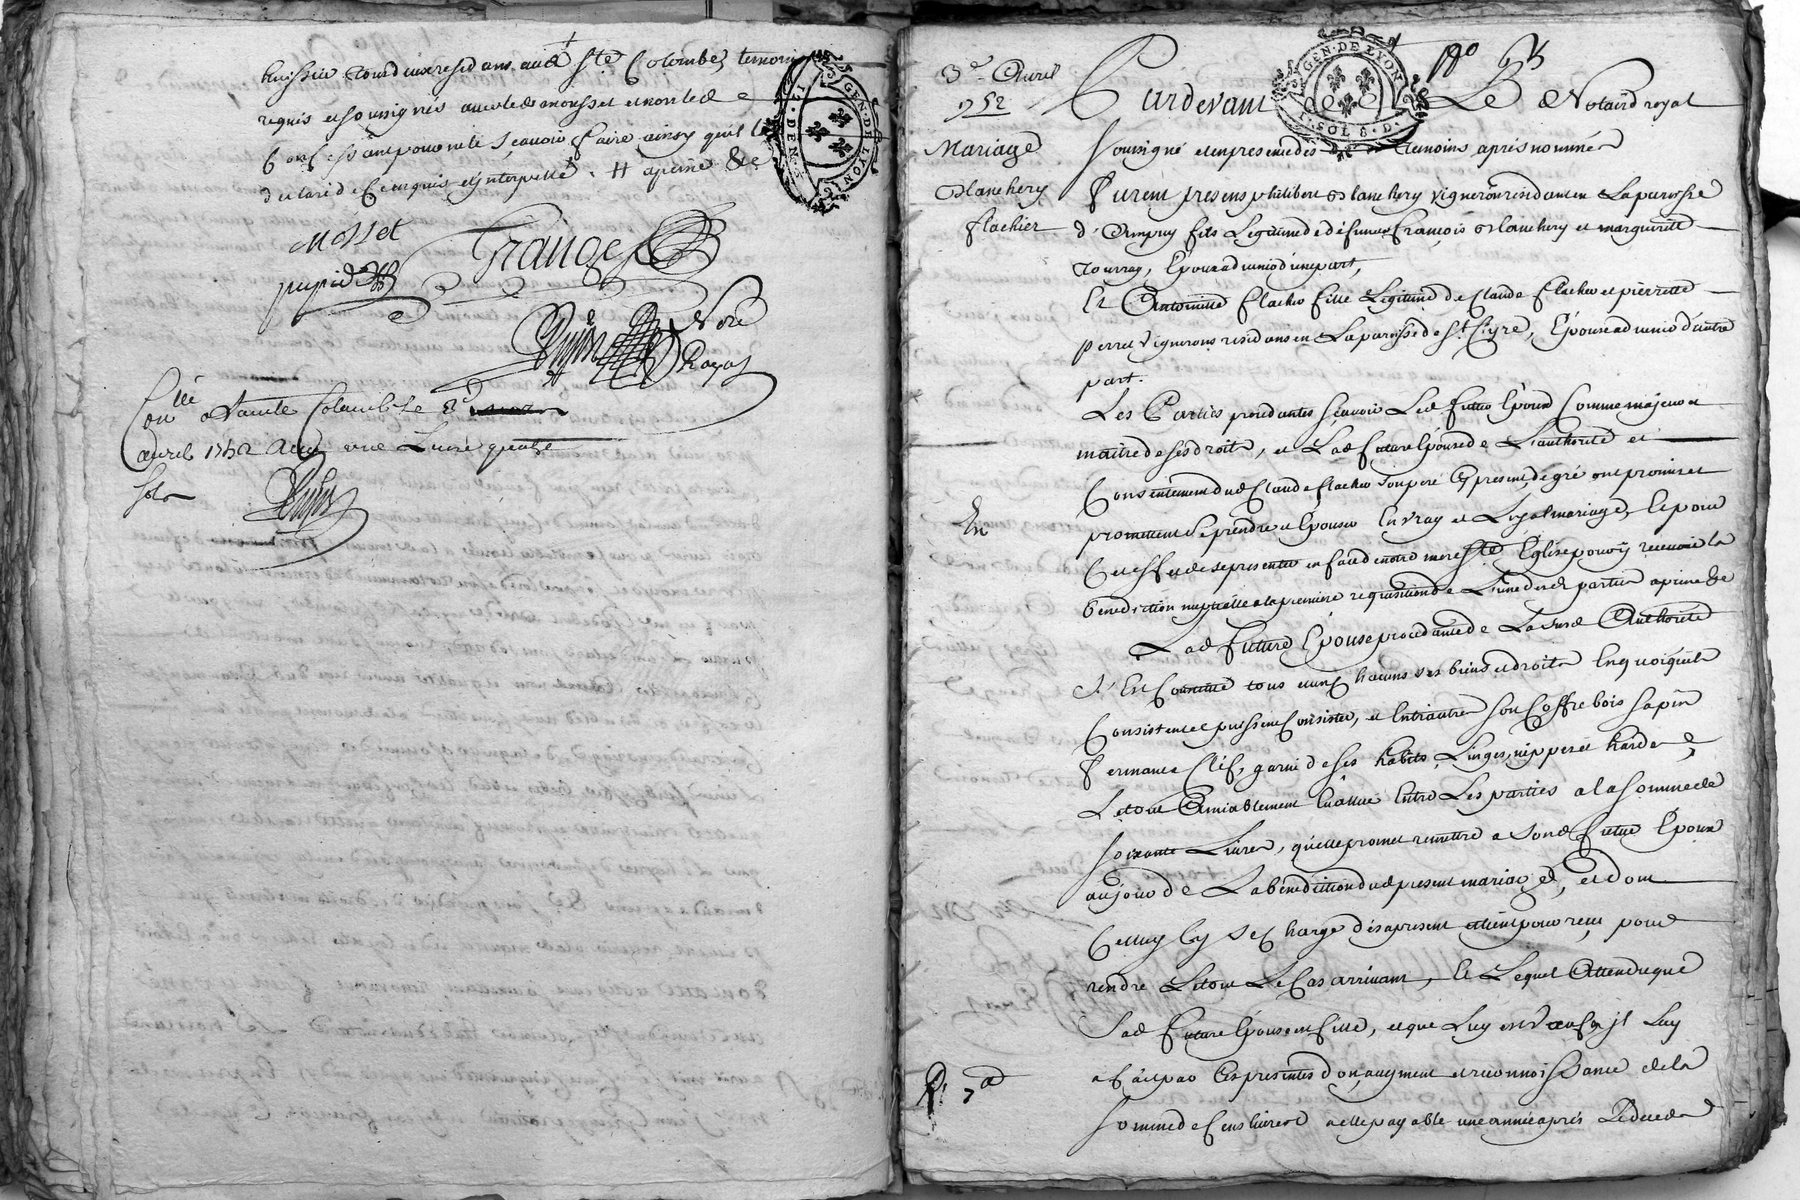 huissier tous deux residans aud Ste Colombe, temoins
requis et soussignés avec led mousset et non led
pour ce sçavoir faire ainsy quil l'a
declaré de ce enquis et interpellé. # apeine &c
GEN. DE LYON
DEN
Mosset
Granges
Dupuy Nore
Royal
Con lle a Sainte Colombe le 8e
avril 1752 Reçu une Livre quatre
sols
Dupuy
3e. Avril
1752
Mariage
Blanchery
flachier
GEN. DE LYON
1. SOL 8. D.
Pardevant Le Notaire royal
soussigné et en presence des temoins aprés nommés
Furent presens philibert Blanchery vigneron residant en La paroisse
d'Ampuy fils Legitime de défunts François Blanchery et marguerite
Tourray, Epoux advenir d'une part,
Et Antoinette flacher fille Légitime de Claude flacher et pierrette
perret vignerons residans en La paroisse de St. Cyre, Epouse advenir d'autre
part.
Les Parties procedantes sçavoir Led futur Epoux Comme majeur et
maitre de ses droits, et Lad future Epouse de L'authorité et
Consentement dud Claude flacher son pere Cy present, de gré ont promis et
En
promettent se prendre et Epouser En vray et Loyal mariage, Et pour
Cet effet de se presenter en face de notre mere Ste Eglise pour y recevoir la
benediction nuptialle a la premiere requisition de L'une desd parties a peine &c
Lad Future Epouse procedante de La susd Authorité
s'Est Constitué tous et uns chacuns ses biens et droits En quoiqu'ils
Consistent et puissent Consister, et Entr'autres son Coffre bois sapin
Fermant a Clef, garni de ses habits, Linges, nippes et hardes,
Le tout Amiablement Evalué Entre Les parties a la somme de
soixante Livres, qu'elle promet remettre a sond futur Epoux
au jour de La bénédiction dud present mariage, et dont
Celluy Cy se charge dés apresent et tient pour reçu pour
rendre Le tout Le Cas arrivant, Et Lequel Attendu que
Sad Future Epouse est fille, et que Luy est Veuf, il Luy
a fait par Ces presentes don, augment et reconnoissance de la
somme de Cens livres a elle payable une année aprés Le deceds